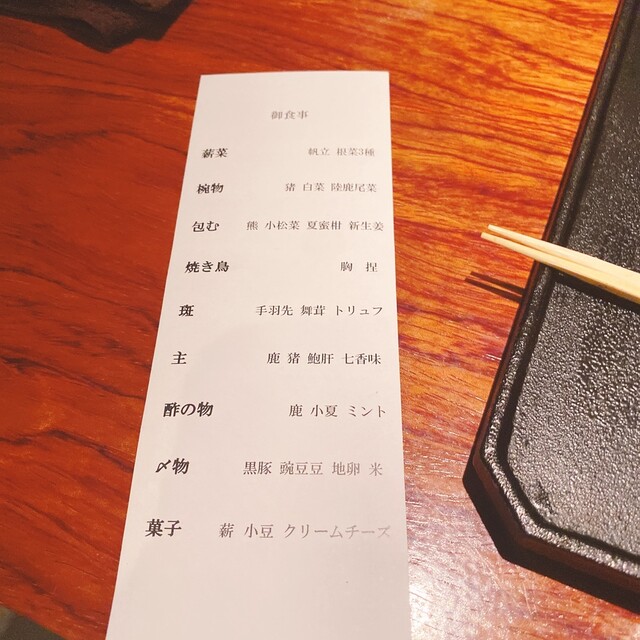 御食事
薪菜 帆立 根菜3種
椀物 猪 白菜 陸鹿尾菜
包む 熊 小松菜 夏蜜柑 新生姜
焼き鳥 胸 捏
斑 手羽先 舞茸 トリュフ
主 鹿 猪 鮑肝 七香味
酢の物 鹿 小夏 ミント
〆物 黒豚 豌豆豆 地卵 米
菓子 薪 小豆 クリームチーズ